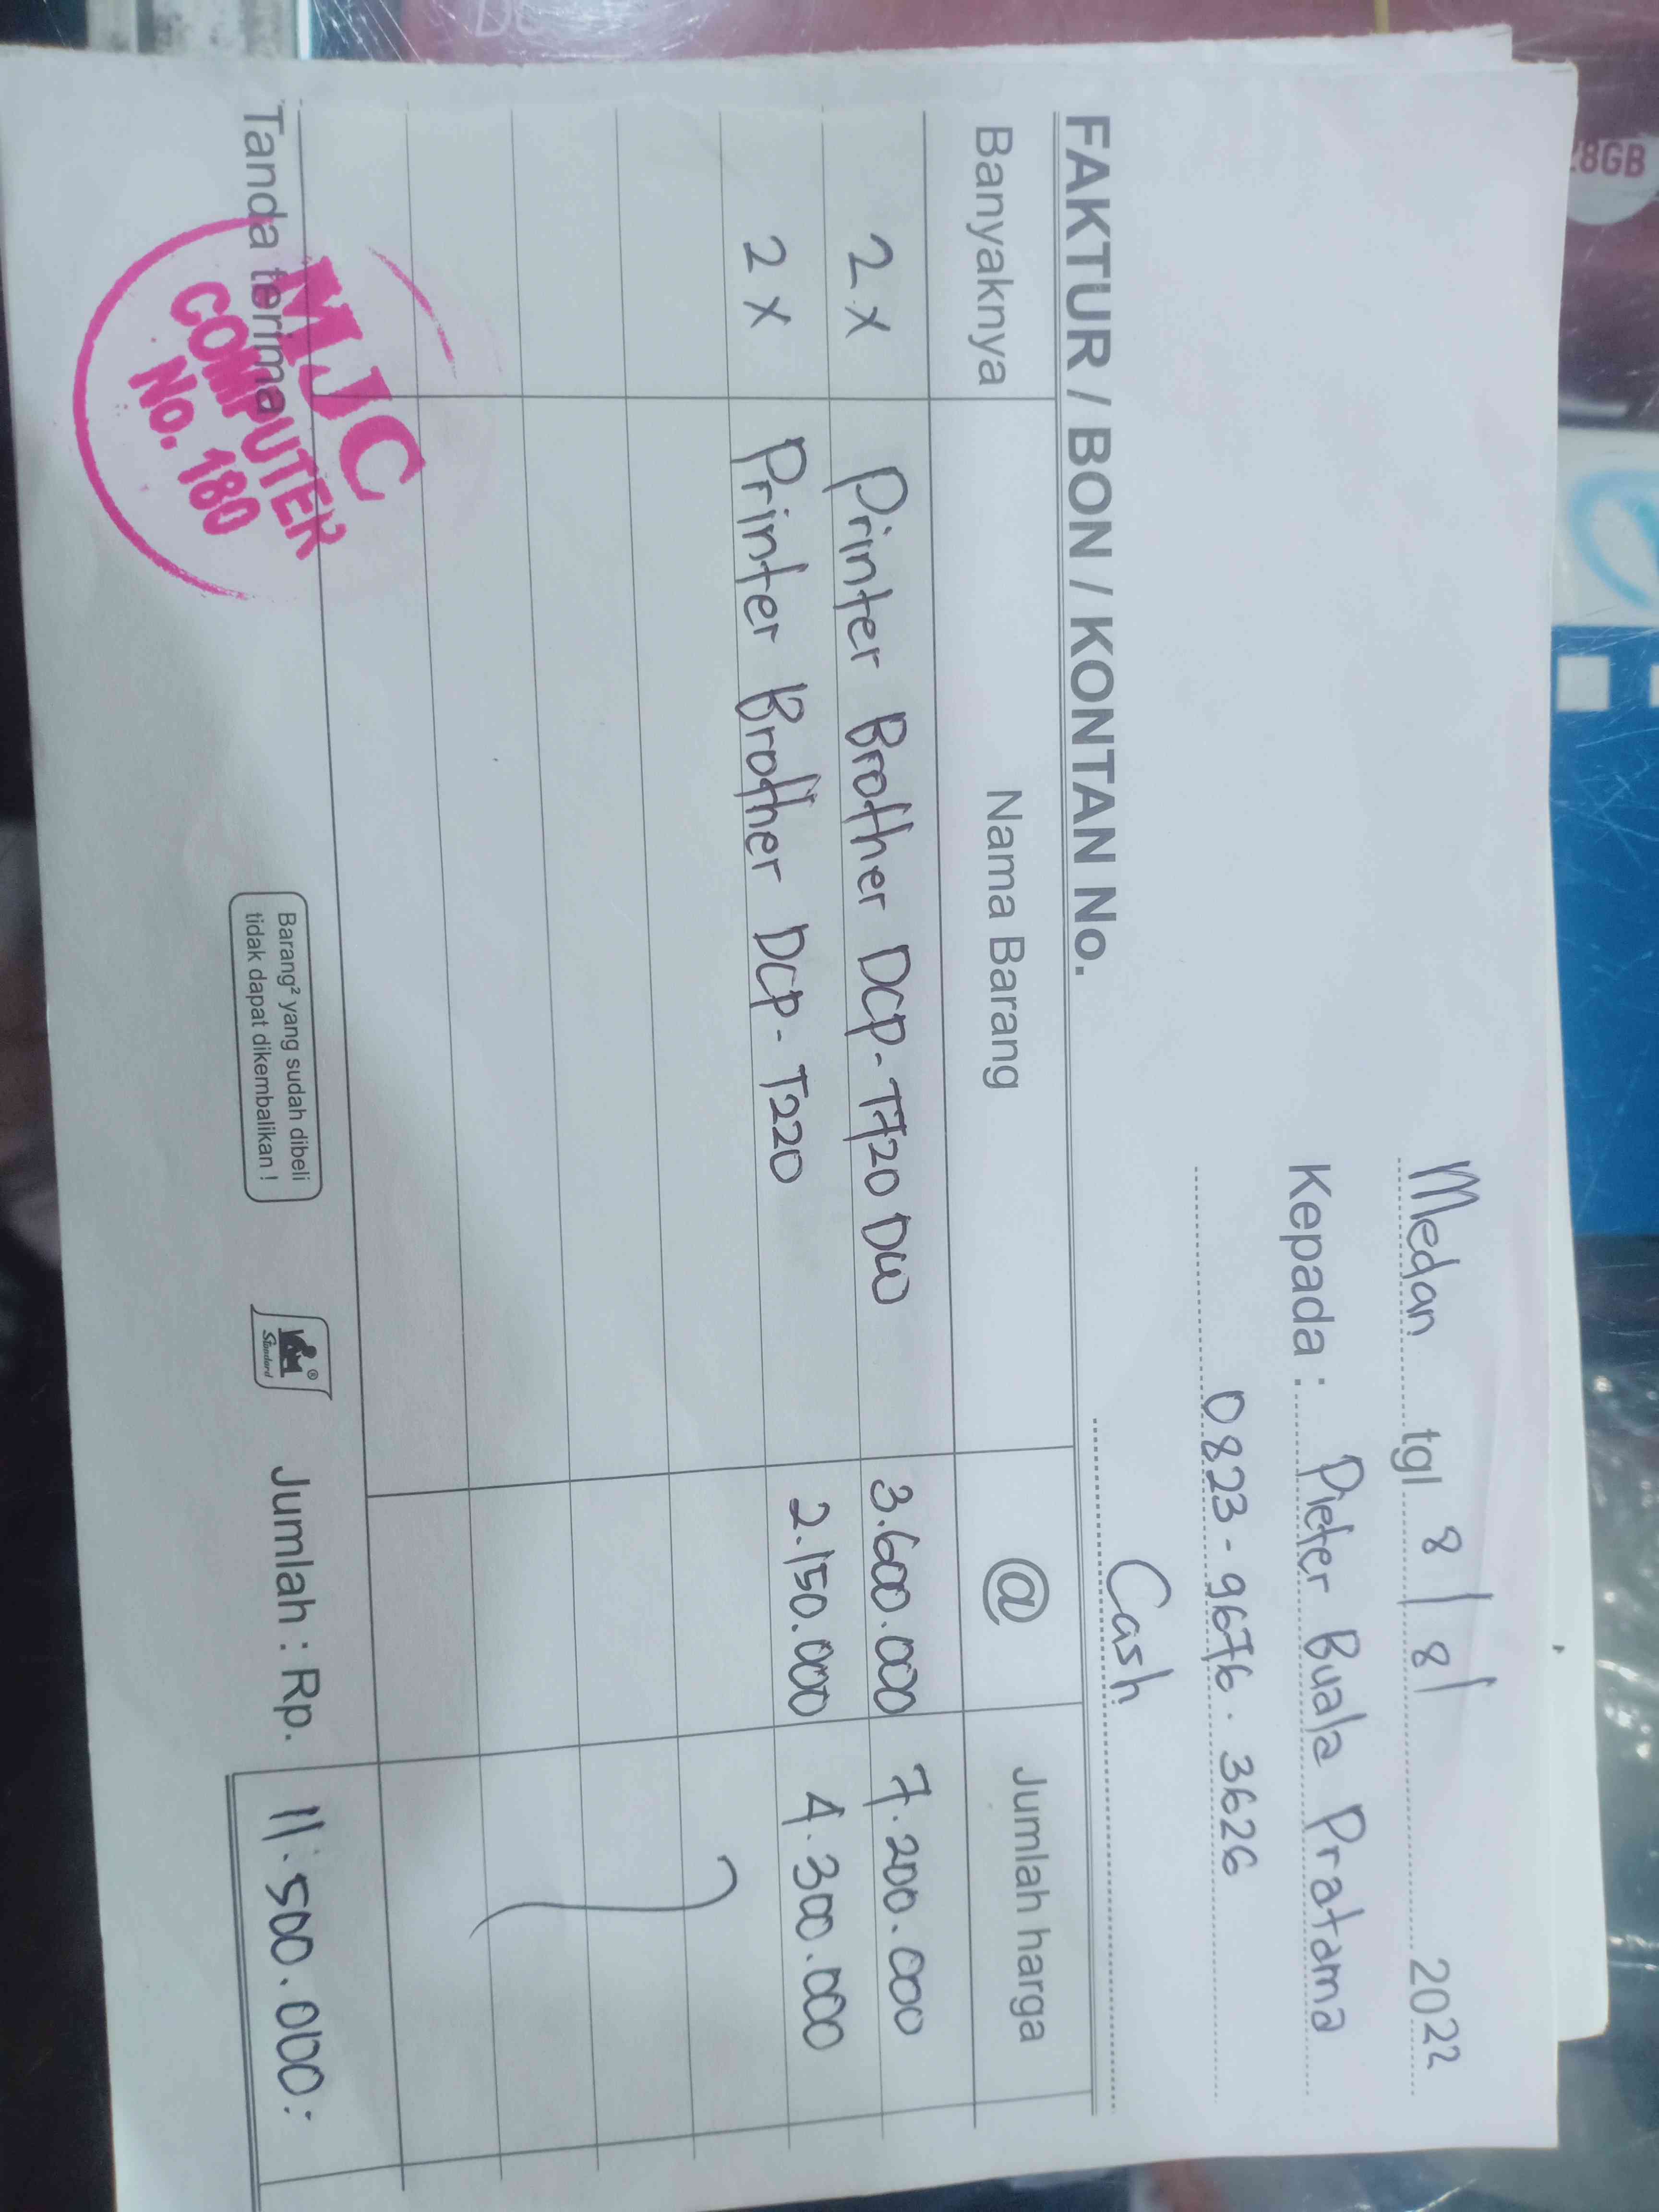 Medan tgl 8/8/ 2022
Kepada : Pieter Buala Pratama
0823-9676.3626
Cash
FAKTUR / BON / KONTAN No.
Banyaknya Nama Barang @ Jumlah harga
2 x Printer Brother DCP-T720 DW 3.600.000 7.200.000
2 x Printer Brother DCP-T220 2.150.000 4.300.000
Tanda terima
Barang² yang sudah dibeli
tidak dapat dikembalikan !
Standard
®
Jumlah : Rp. 11.500.000:
MJC
COMPUTER
No. 180
28GB